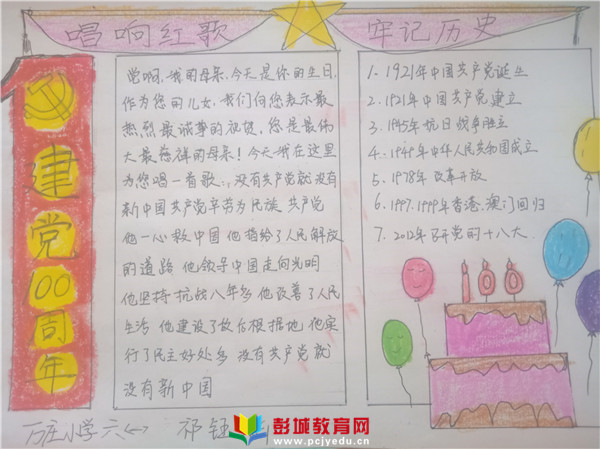 唱响红歌
牢记历史
建党100周年
党啊,我的母亲,今天是你的生日,
作为您的儿女,我们向您表示最
热烈最诚挚的祝愿,您是最伟
大最慈祥的母亲!今天我在这里
为您唱一首歌:没有共产党就没有
新中国共产党辛劳为民族 共产党
他一心救中国 他指给了人民解放
的道路 他领导中国走向光明
他坚持抗战八年多 他改善了人民
生活 他建设了敌后根据地 他实
行了民主好处多 没有共产党就
没有新中国
1、1921年中国共产党诞生
2、1921年中国共产党建立
3、1945年抗日战争胜立
4、1949年中华人民共和国成立
5、1978年 改革开放
6、1997、1999年香港、澳门回归
7、2012年召开党的十八大
100
万庄小学六
祁钰
彭城教育网
www.pcjyedu.cn